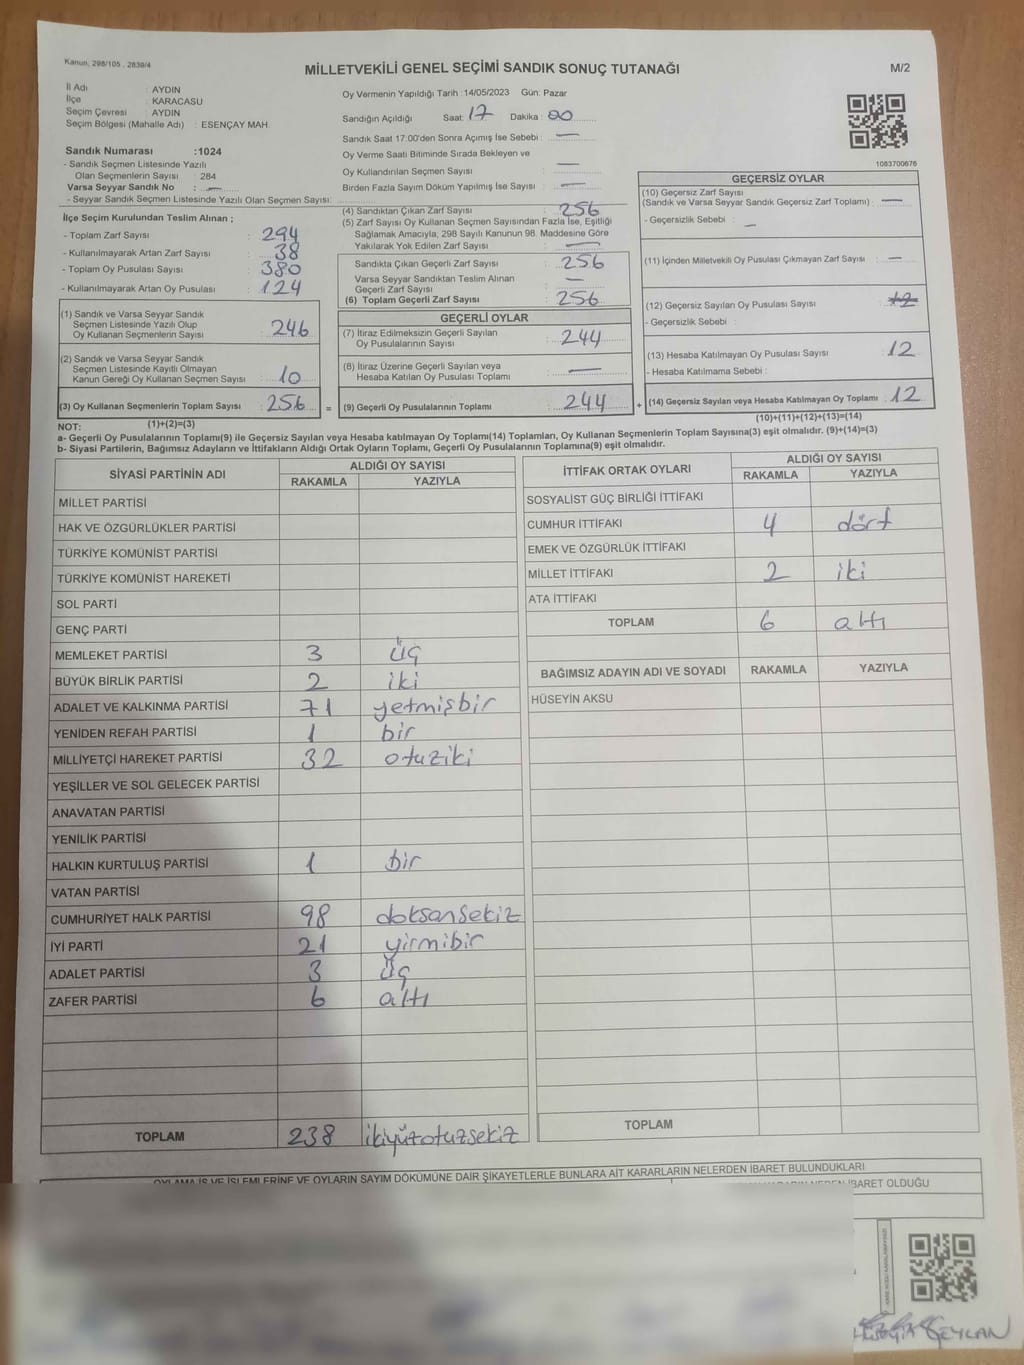 Kanun; 298/105 , 2839/4
MİLLETVEKİLİ GENEL SEÇİMİ SANDIK SONUÇ TUTANAĞI
M/2
İl Adı : AYDIN
İlçe : KARACASU
Seçim Çevresi : AYDIN
Seçim Bölgesi (Mahalle Adı) : ESENÇAY MAH.
Oy Vermenin Yapıldığı Tarih :14/05/2023 Gün: Pazar
Sandığın Açıldığı Saat: 17 Dakika : 00
Sandık Saat 17:00'den Sonra Açımış İse Sebebi : —
Oy Verme Saati Bitiminde Sırada Bekleyen ve
Oy Kullandırılan Seçmen Sayısı : —
Birden Fazla Sayım Döküm Yapılmış İse Sayısı : —
1083700676
Sandık Numarası :1024
- Sandık Seçmen Listesinde Yazılı
Olan Seçmenlerin Sayısı : 284
Varsa Seyyar Sandık No : —
- Seyyar Sandık Seçmen Listesinde Yazılı Olan Seçmen Sayısı:
İlçe Seçim Kurulundan Teslim Alınan ;
- Toplam Zarf Sayısı : 294
- Kullanılmayarak Artan Zarf Sayısı : 38
- Toplam Oy Pusulası Sayısı : 380
- Kullanılmayarak Artan Oy Pusulası : 124
(1) Sandık ve Varsa Seyyar Sandık
Seçmen Listesinde Yazılı Olup
Oy Kullanan Seçmenlerin Sayısı : 246
(2) Sandık ve Varsa Seyyar Sandık
Seçmen Listesinde Kayıtlı Olmayan
Kanun Gereği Oy Kullanan Seçmen Sayısı : 10
(3) Oy Kullanan Seçmenlerin Toplam Sayısı : 256
(1)+(2)=(3)
(4) Sandıktan Çıkan Zarf Sayısı : 256
(5) Zarf Sayısı Oy Kullanan Seçmen Sayısından Fazla İse, Eşitliği
Sağlamak Amacıyla, 298 Sayılı Kanunun 98. Maddesine Göre
Yakılarak Yok Edilen Zarf Sayısı : —
Sandıkta Çıkan Geçerli Zarf Sayısı : 256
Varsa Seyyar Sandıktan Teslim Alınan
Geçerli Zarf Sayısı : —
(6) Toplam Geçerli Zarf Sayısı : 256
GEÇERLİ OYLAR
(7) İtiraz Edilmeksizin Geçerli Sayılan
Oy Pusulalarının Sayısı : 244
(8) İtiraz Üzerine Geçerli Sayılan veya
Hesaba Katılan Oy Pusulası Toplamı : —
= (9) Geçerli Oy Pusulalarının Toplamı : 244
GEÇERSİZ OYLAR
(10) Geçersiz Zarf Sayısı
(Sandık ve Varsa Seyyar Sandık Geçersiz Zarf Toplamı) : —
- Geçersizlik Sebebi : —
(11) İçinden Milletvekili Oy Pusulası Çıkmayan Zarf Sayısı : —
(12) Geçersiz Sayılan Oy Pusulası Sayısı : 12
- Geçersizlik Sebebi :
(13) Hesaba Katılmayan Oy Pusulası Sayısı : 12
- Hesaba Katılmama Sebebi :
+ (14) Geçersiz Sayılan veya Hesaba Katılmayan Oy Toplamı : 12
(10)+(11)+(12)+(13)=(14)
NOT:
a- Geçerli Oy Pusulalarının Toplamı(9) ile Geçersiz Sayılan veya Hesaba katılmayan Oy Toplamı(14) Toplamları, Oy Kullanan Seçmenlerin Toplam Sayısına(3) eşit olmalıdır. (9)+(14)=(3)
b- Siyasi Partilerin, Bağımsız Adayların ve İttifakların Aldığı Ortak Oyların Toplamı, Geçerli Oy Pusulalarının Toplamına(9) eşit olmalıdır.
SİYASİ PARTİNİN ADI ALDIĞI OY SAYISI
RAKAMLA YAZIYLA
MİLLET PARTİSİ
HAK VE ÖZGÜRLÜKLER PARTİSİ
TÜRKİYE KOMÜNİST PARTİSİ
TÜRKİYE KOMÜNİST HAREKETİ
SOL PARTİ
GENÇ PARTİ
MEMLEKET PARTİSİ 3 üç
BÜYÜK BİRLİK PARTİSİ 2 iki
ADALET VE KALKINMA PARTİSİ 71 yetmişbir
YENİDEN REFAH PARTİSİ 1 bir
MİLLİYETÇİ HAREKET PARTİSİ 32 otuziki
YEŞİLLER VE SOL GELECEK PARTİSİ
ANAVATAN PARTİSİ
YENİLİK PARTİSİ
HALKIN KURTULUŞ PARTİSİ 1 bir
VATAN PARTİSİ
CUMHURİYET HALK PARTİSİ 98 doksansekiz
İYİ PARTİ 21 yirmibir
ADALET PARTİSİ 3 üç
ZAFER PARTİSİ 6 altı
TOPLAM 238 ikiyüzotuzsekiz
İTTİFAK ORTAK OYLARI ALDIĞI OY SAYISI
RAKAMLA YAZIYLA
SOSYALİST GÜÇ BİRLİĞİ İTTİFAKI
CUMHUR İTTİFAKI 4 dört
EMEK VE ÖZGÜRLÜK İTTİFAKI
MİLLET İTTİFAKI 2 iki
ATA İTTİFAKI
TOPLAM 6 altı
BAĞIMSIZ ADAYIN ADI VE SOYADI RAKAMLA YAZIYLA
HÜSEYİN AKSU
TOPLAM
OYLAMA İŞ VE İŞLEMLERİNE VE OYLARIN SAYIM DÖKÜMÜNE DAİR ŞİKAYETLERLE BUNLARA AİT KARARLARIN NELERDEN İBARET BULUNDUKLARI
İBARET OLDUĞU
CEYLAN